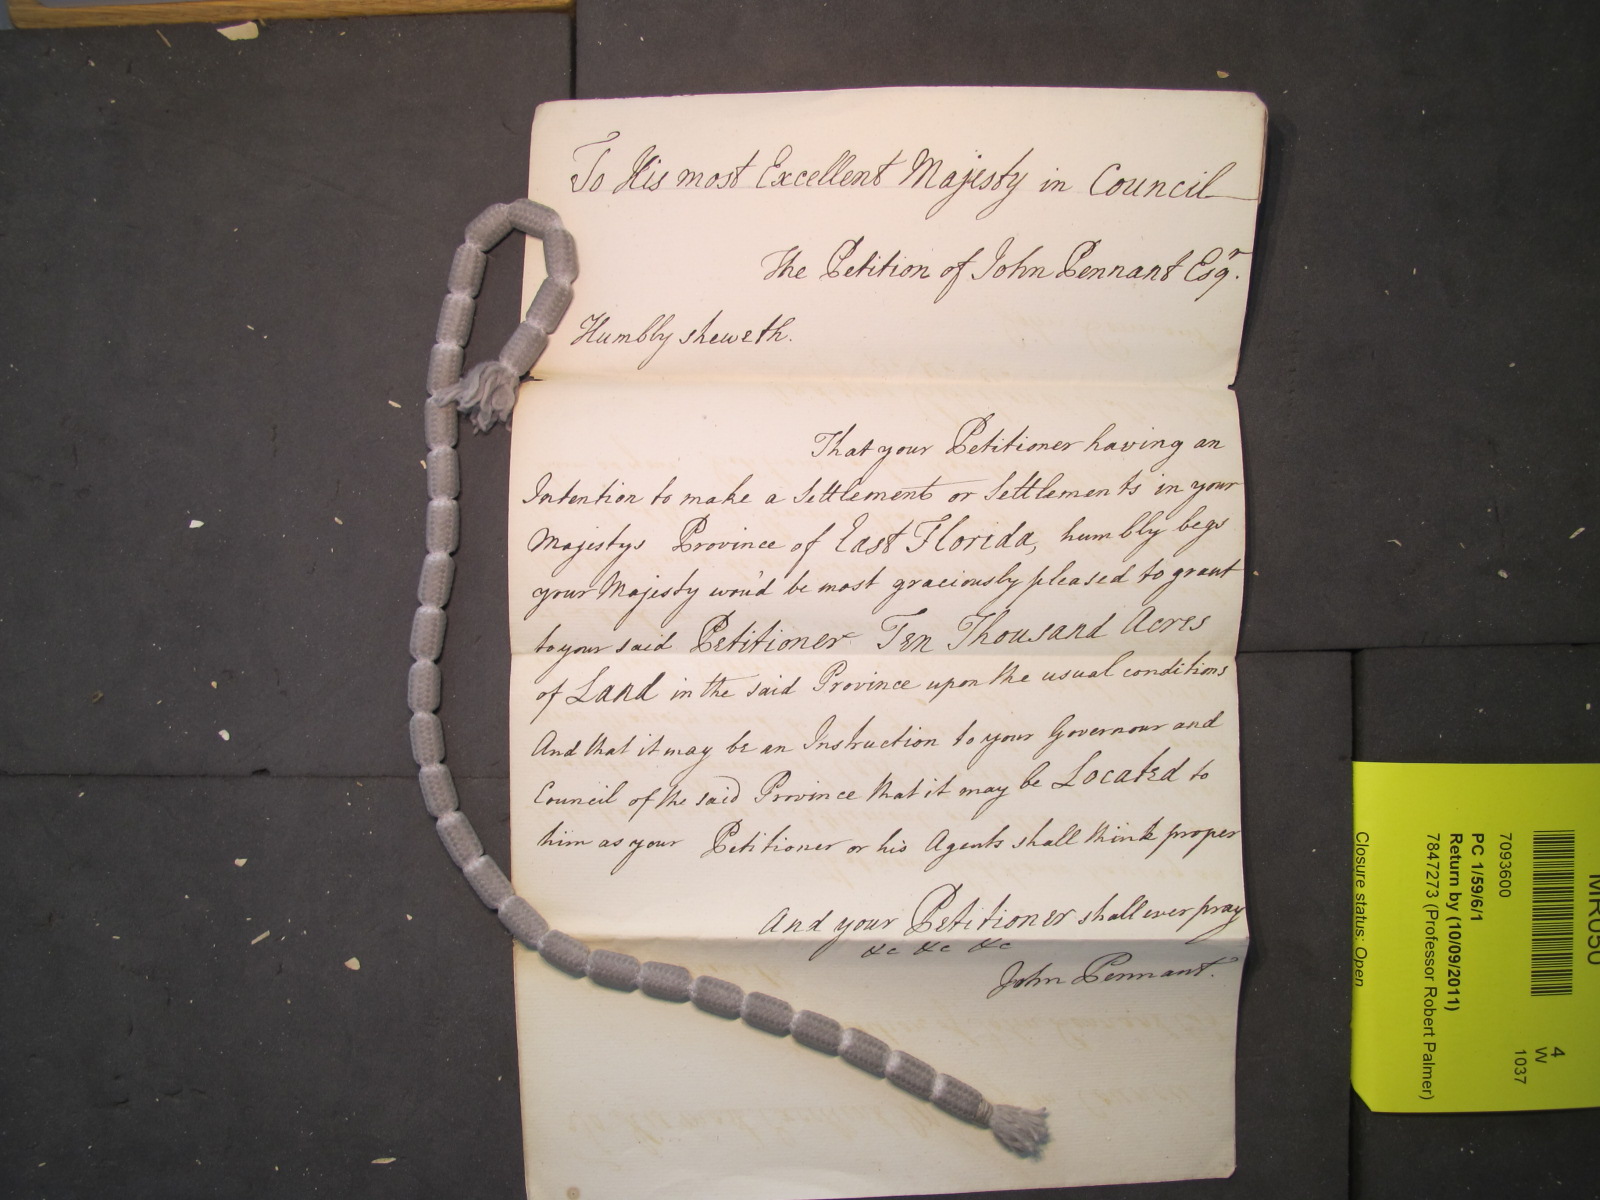 To His most Excellent Majesty in Council
The Petition of John Pennant Esqr.
Humbly sheweth.
That your Petitioner having an
Intention to make a Settlement or Settlements in your
Majestys Province of East Florida, humbly begs
your Majesty wou'd be most graciously pleased to grant
to your said Petitioner Ten Thousand Acres
of Land in the said Province upon the usual conditions
And that it may be an Instruction to your Governour and
Council of the said Province that it may be Located to
him as your Petitioner or his Agents shall think proper
And your Petitioner shall ever pray
&c &c &c
John Pennant.
MR050
4
W
1037
7093600
PC 1/59/6/1
Return by (10/09/2011)
7847273 (Professor Robert Palmer)
Closure status: Open